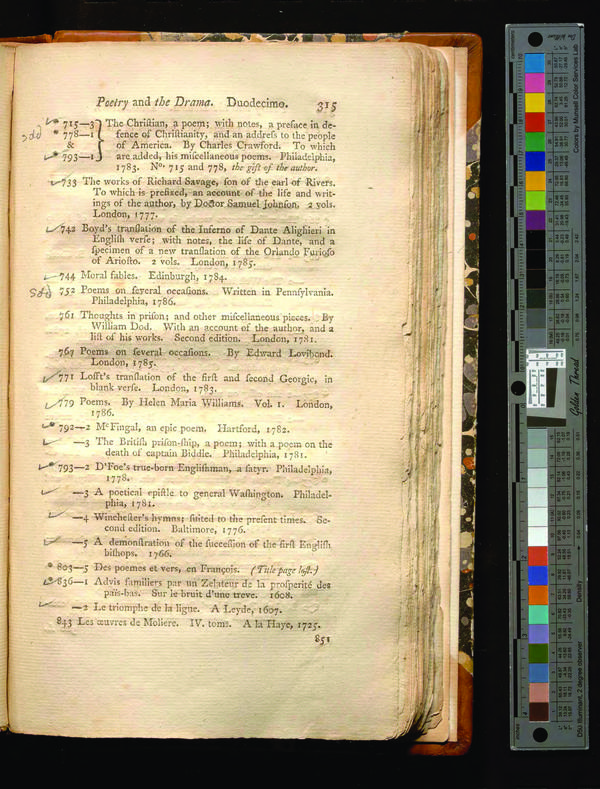 Poetry and the Drama. Duodecimo. 315
* 715—3 } The Chriſtian, a poem; with notes, a preface in de-
sdd * 778—1 fence of Chriſtianity, and an addreſs to the people
& of America. By Charles Crawford. To which
* 793—1 are added, his miſcellaneous poems. Philadelphia,
1783. No. 715 and 778, the gift of the author.
733 The works of Richard Savage, ſon of the earl of Rivers.
To which is prefixed, an account of the life and writ-
ings of the author, by Doctor Samuel Johnſon. 2 vols.
London, 1777.
742 Boyd's tranſlation of the Inferno of Dante Alighieri in
Engliſh verſe; with notes, the life of Dante, and a
ſpecimen of a new tranſlation of the Orlando Furioſo
of Arioſto. 2 vols. London, 1785.
744 Moral fables. Edinburgh, 1784.
sdd 752 Poems on ſeveral occaſions. Written in Pennſylvania.
Philadelphia, 1786.
761 Thoughts in priſon; and other miſcellaneous pieces. By
William Dod. With an account of the author, and a
liſt of his works. Second edition. London, 1781.
767 Poems on ſeveral occaſions. By Edward Lovibond.
London, 1785.
771 Lofft's tranſlation of the firſt and ſecond Georgic, in
blank verſe. London, 1783.
779 Poems. By Helen Maria Williams. Vol. 1. London,
1786.
* 792—2 McFingal, an epic poem. Hartford, 1782.
—3 The Britiſh priſon-ſhip, a poem; with a poem on the
death of captain Biddle. Philadelphia, 1781.
* 793—2 D'Foe's true-born Engliſhman, a ſatyr. Philadelphia,
1778.
—3 A poetical epiſtle to general Waſhington. Philadel-
phia, 1781.
—4 Wincheſter's hymns; ſuited to the preſent times. Se-
cond edition. Baltimore, 1776.
—5 A demonſtration of the ſucceſſion of the firſt Engliſh
biſhops. 1766.
* 803—5 Des poemes et vers, en François. (Title page loſt.)
* 836—1 Advis familiers par un Zelateur de la proſperité des
païs-bas. Sur le bruit d'une treve. 1608.
—2 Le triomphe de la ligue. A Leyde, 1607.
843 Les œuvres de Moliere. IV. toms. A la Haye, 1725.
851
Colors by Munsell Color Services Lab
Golden Thread
Density
D50 Illuminant, 2 degree observer